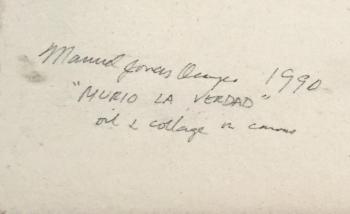 Manuel 1990
"MURIO LA VERDAD"
oil & collage on canvas